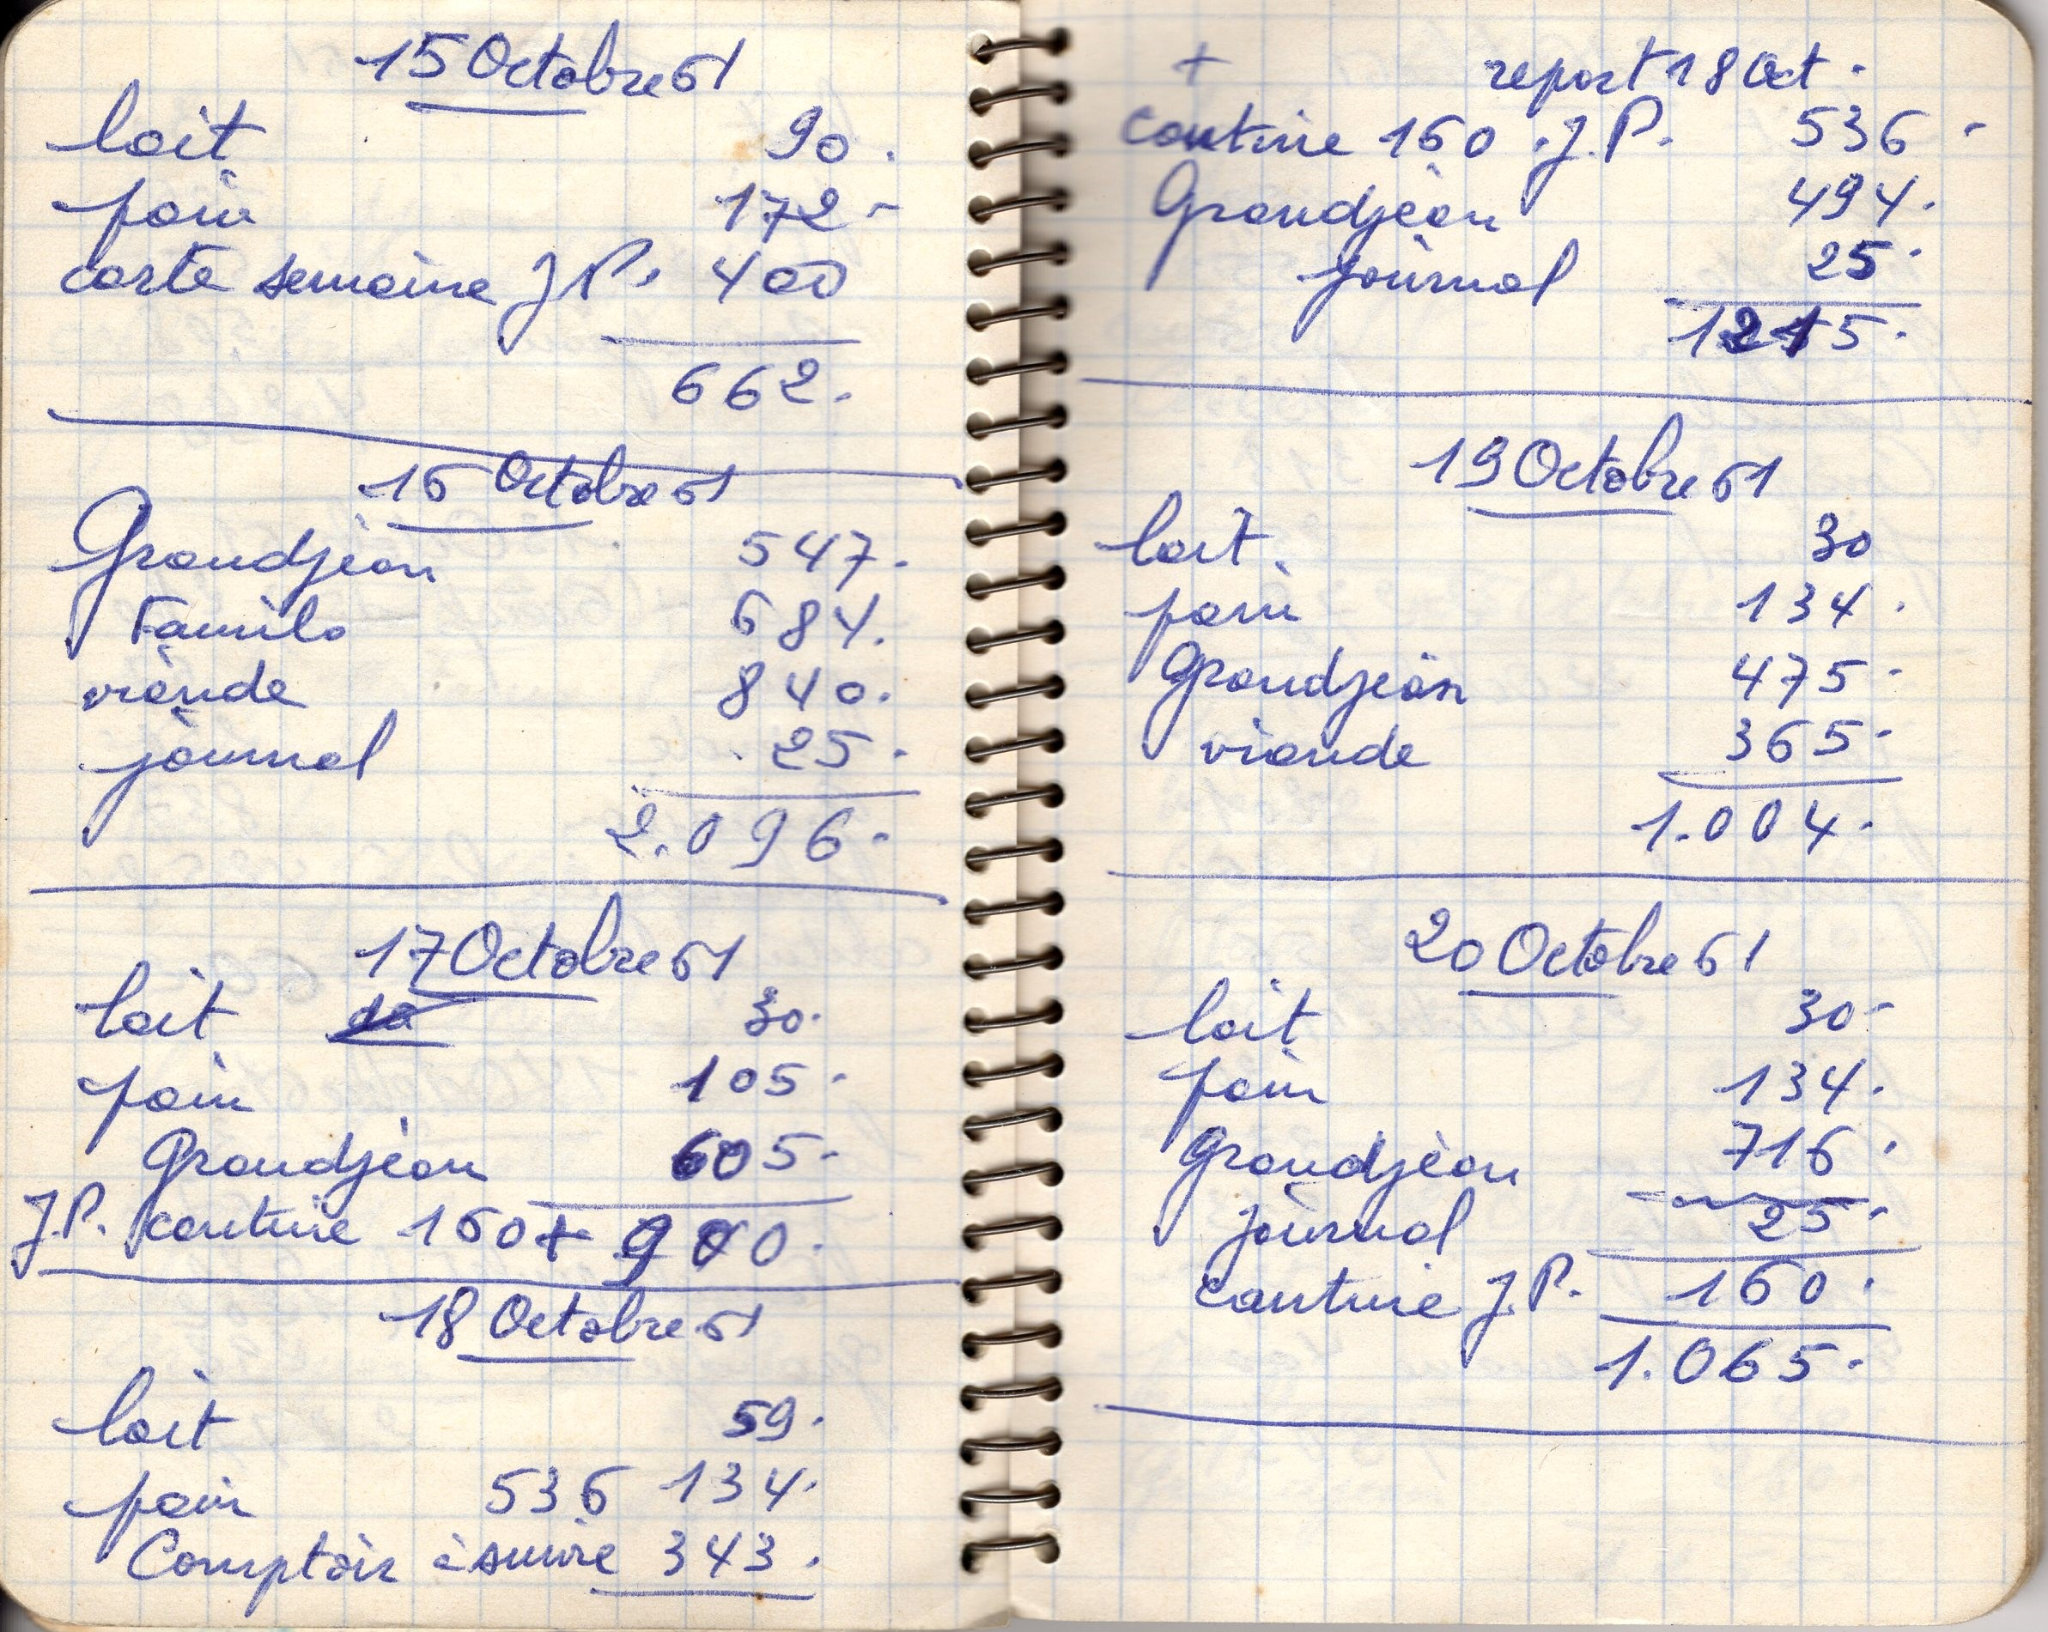 15 Octobre 61
lait 90.
pain 172-
carte semaine J.P. 400
662.
16 Octobre 61
Grandjean 547.
Familo 684.
viande 840.
journal 25.
2.096.
17 Octobre 61
lait 30.
pain 105.
Grandjean 605.
J.P. cantine 160+ 900.
18 Octobre 61
lait 59.
pain 536 134.
Comptoir à suivre 343.
+ report 18 Oct.
cantine 160 J.P. 536-
Grandjean 494.
journal 25.
1215.
19 Octobre 61
lait 30
pain 134.
Grandjean 475-
viande 365-
1.004.
20 Octobre 61
lait 30-
pain 134.
Grandjean 716.
journal 25-
cantine J.P. 160.
1.065.